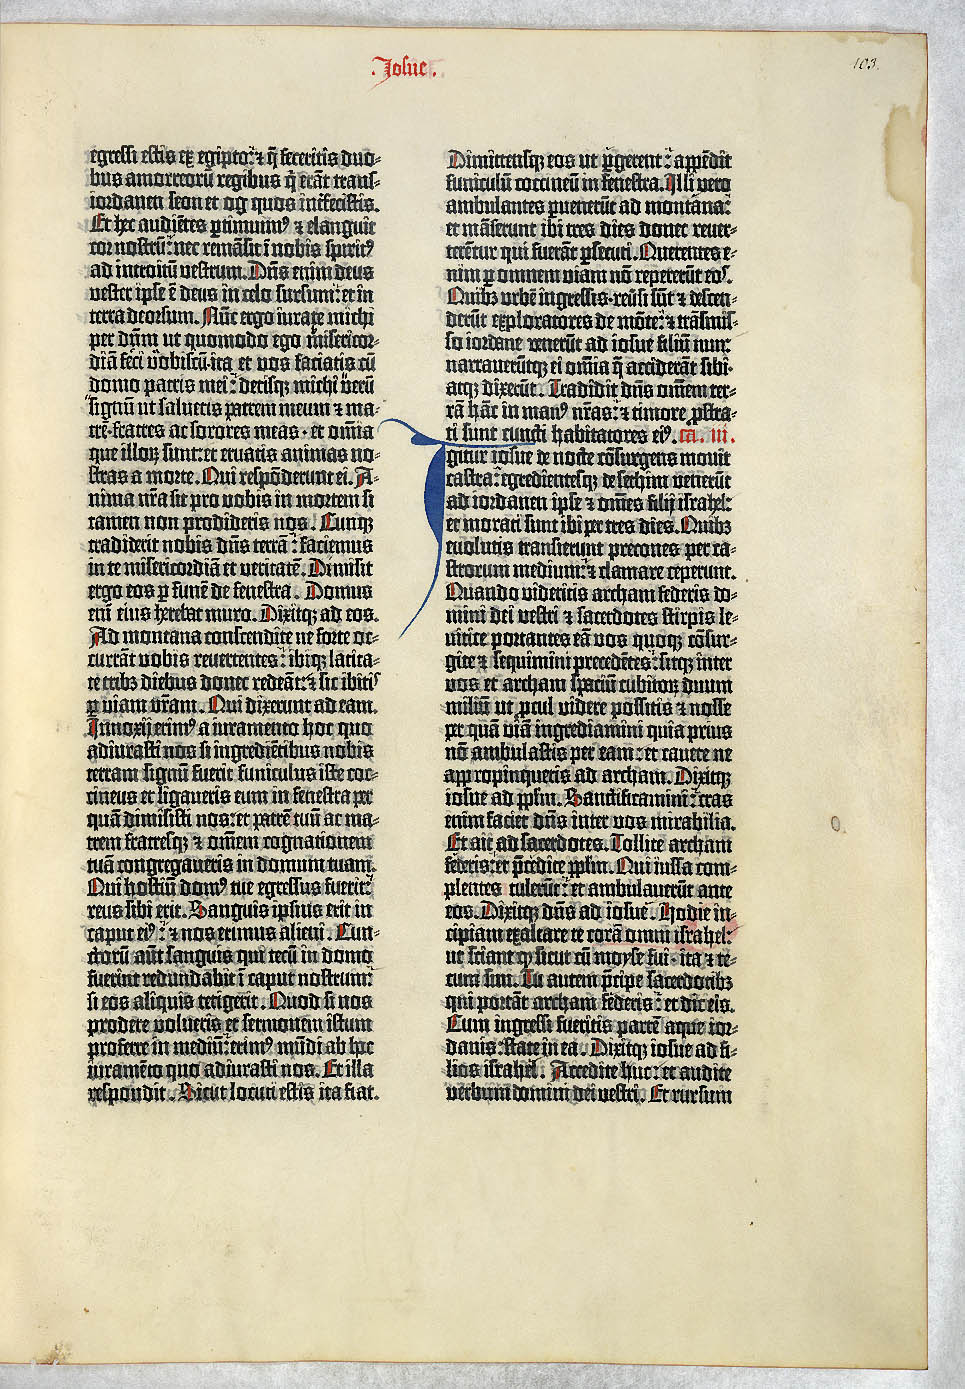 .Josue.
103.
egressi estis ex egipto: ⁊ q̄ feceritis duo-
bus amorreorū regibus q̄ erāt trans-
iordanen seon et og quos interfecistis.
Et hec audiētes ꝑtimuimꝰ ⁊ elanguit
cor nostrū: nec remāsit ī nobis spiritꝰ
ad introitū vestrum. Dn̄s enim deus
vester ipse ē deus in celo sursum: et in
terra deorsum. Nūc ergo iurate michi
per dn̄m ut quomodo ego misericor-
diā feci vobiscū · ita et vos faciatis cū
domo patris mei: detisqꝫ michi verū
signū ut salvetis patrem meum ⁊ ma-
trē · fratres ac sorores meas · et om̄ia
que illoꝝ sunt: et eruatis animas no-
stras a morte. Qui respōderunt ei. A-
nima nr̄a sit pro vobis in mortem si
tamen non prodideris nos. Cunqꝫ
tradiderit nobis dn̄s terrā: faciemus
in te misericordiā et veritatē. Dimisit
ergo eos ꝑ funē de fenestra. Domus
eni ̄ eius herebat muro. Dixitqꝫ ad eos.
Ad montana conscendite ne forte oc-
currāt vobis revertentes: ibiqꝫ latita-
te tribꝫ diebus donec redeāt: ⁊ sic ibitis
ꝑ viam vr̄am. Qui dixerunt ad eam.
Innoxij erimꝰ a iuramento hoc quo
adiurasti nos si ingrediētibus nobis
terram signū fuerit funiculus iste coc-
cineus et ligaveris eum in fenestra per
quā dimisisti nos: et patrē tuū ac ma-
trem fratresqꝫ ⁊ om̄em cognationem
tuā congregaveris in domum tuam.
Qui hostiū domꝰ tue egressus fuerit:
reus sibi erit. Sanguis ipsius erit in
caput eiꝰ: ⁊ nos erimus alieni. Cun-
ctorū aūt sanguis qui tecū in domo
fuerint redundabit ī caput nostrum:
si eos aliquis tetigerit. Quod si nos
prodere volueris et sermonem istum
proferre in mediū: erimꝰ mūdi ab hoc
iuramēto quo adiurasti nos. Et illa
respondit. Sicut locuti estis ita fiat.
Dimittensqꝫ eos ut ꝑgerent: appēdit
funiculū coccineū in fenestra. Illi vero
ambulantes ꝑvenerūt ad montana:
et māserunt ibi tres dies donec rever-
terētur qui fuerāt ꝑsecuti. Querentes e-
nim ꝑ omnem viam nō repererūt eos.
Quibꝫ urbē ingressis · reūsi sūt ⁊ descen-
derūt exploratores de mōte: ⁊ trāsmis-
so iordane venerūt ad iosue filiū nun:
narraverūtqꝫ ei om̄ia q̄ acciderāt sibi ·
atqꝫ dixerūt. Tradidit dn̄s om̄em ter-
rā hāc in manꝰ nr̄as: ⁊ timore ꝓstra-
ti sunt cuncti habitatores eiꝰ. ca. iii.
Igitur iosue de nocte cōsurgens movit
castra: egredientesqꝫ de sethim venerūt
ad iordanen ipse ⁊ om̄es filij israhel:
et morati sunt ibi per tres dies. Quibꝫ
evolutis transierunt precones per ca-
strorum medium: ⁊ clamare ceperunt.
Quando videritis archam federis do-
mini dei vestri ⁊ sacerdotes stirpis le-
vitice portantes eā vos quoqꝫ cōsur-
gite ⁊ sequimini precedētes: sitqꝫ inter
vos et archam spaciū cubitoꝝ duum
miliū ut ꝓcul videre possitis ⁊ nosse
per quā viā ingrediamini quia prius
nō ambulastis per eam: et cavete ne
appropinquetis ad archam. Dixitqꝫ
iosue ad ppl̄m. Sanctificamini: cras
enim faciet dn̄s inter vos mirabilia.
Et ait ad sacerdotes. Tollite archam
federis: et p̄cedite ppl̄m. Qui iussa com-
plentes tulerūt: et ambulaverūt ante
eos. Dixitqꝫ dn̄s ad iosue. Hodie in-
cipiam exaltare te corā omni israhel:
ut sciant ꝙ sicut cū moyse fui · ita ⁊ te-
cum sim. Tu autem p̄cipe sacerdotibꝫ
qui portāt archam federis: et dic eis.
Cum ingressi fueritis partē aque ior-
danis: state in ea. Dixitqꝫ iosue ad fi-
lios israhel. Accedite huc: et audite
verbum domini dei vestri. Et rursum